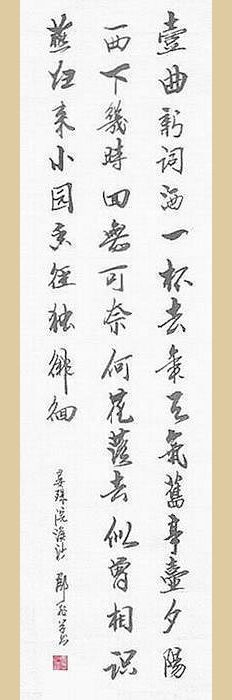 壹曲新词酒一杯去年天氣舊亭臺夕陽
西下幾時回無可奈何花落去似曾相识
燕归来小园香径独徘徊
晏殊浣溪沙